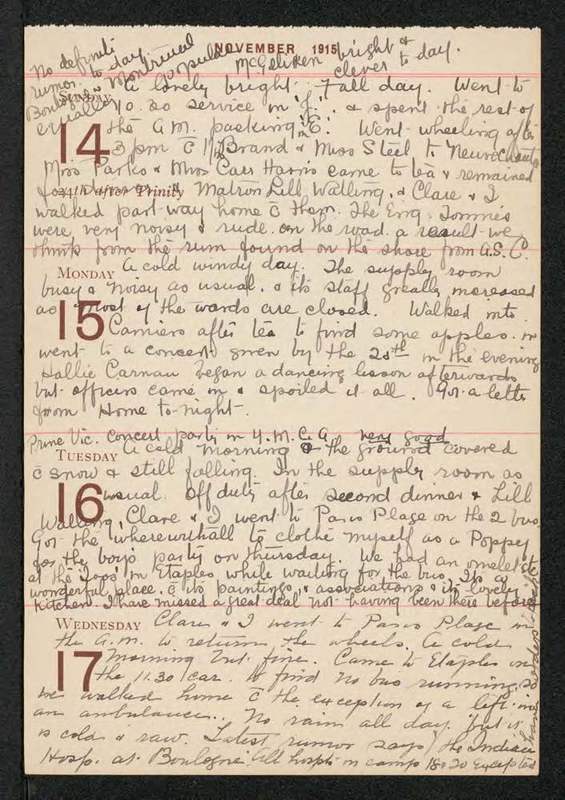 NOVEMBER 1915
No definite rumor to day. Montreal McGeliken bright &
Boulogne popular clever to day.
equally
Sunday A lovely bright Fall day. Went to
14 to service in "J" & spent the rest of
the A.M. packing in "E". Went wheeling after
3 pm c̄ Brand & Miss Steel to Neufchatel
Miss Parks & Miss Carr Harris came to tea & remained
24th after Trinity Matron Lill, Watling, & Clare & I
walked part way home c̄ them. The Eng. Tommies
were very noisy & rude on the road a result we
think from the rum found on the shore from A.S.C.
MONDAY A cold windy day. The supply room
busy & noisy as usual. & its staff greatly increased
15 as most of the wards are closed. Walked into
Camiers after tea to find some apples.
went to a concert given by the 20th in the evening
Hallie Carman began a dancing lesson afterwards
but officers came in & spoiled it all. Got a letter
from Home to-night.
Prime Vic. concert party in Y.M.C.A. very good
TUESDAY A cold morning & the ground covered
c̄ snow & still falling. In the supply room as
16 usual. Off duty after second dinner & Lill
Watling, Clare & I went to Paris Plage on the 2 bus
Got the wherewithall to clothe myself as a Poppy
for the boys party on Thursday. We had an omelet
at the in Etaples while waiting for the bus. Its a
wonderful place. c̄ its paintings, & associations & its lovely
kitchen. I have missed a great deal not having been there before
WEDNESDAY Clare & I went to Paris Plage in
the a.m. to return the wheels. A cold
17 morning but fine. Came to Etaples on
the 11.30 car. to find no bus running, so
we walked home c̄ the exception of a lift in
an ambulance. No rain all day, but it
is cold & raw. Latest rumor says the Indian
Hosp. at Boulogne. All hospts in camp 18 & 20 excepted